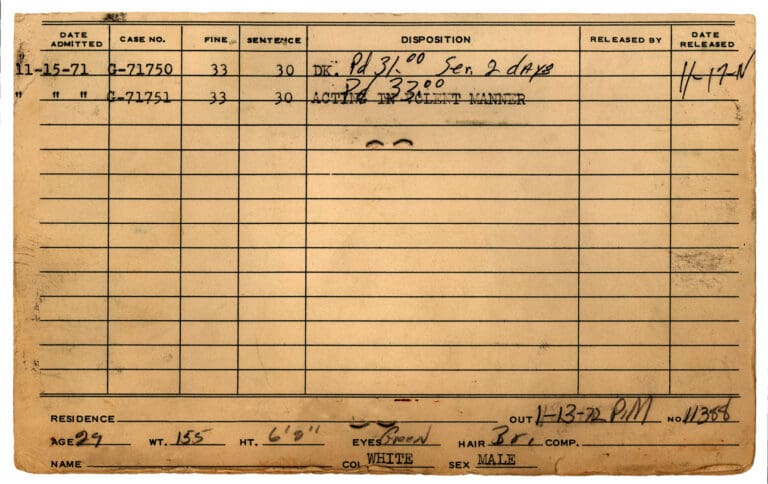 DATE ADMITTED CASE NO. FINE SENTENCE DISPOSITION RELEASED BY DATE RELEASED
11-15-71 G-71750 33 30 DK. Pd 31.00 Ser. 2 days 11-17-N
" " " G-71751 33 30 Pd 33.00
ACTING IN VOLENT MANNER
RESIDENCE OUT 11-13-72 P.M NO. 11388
AGE 29 WT. 155 HT. 6'0" EYES Green HAIR Br. COMP.
NAME COL WHITE SEX MALE